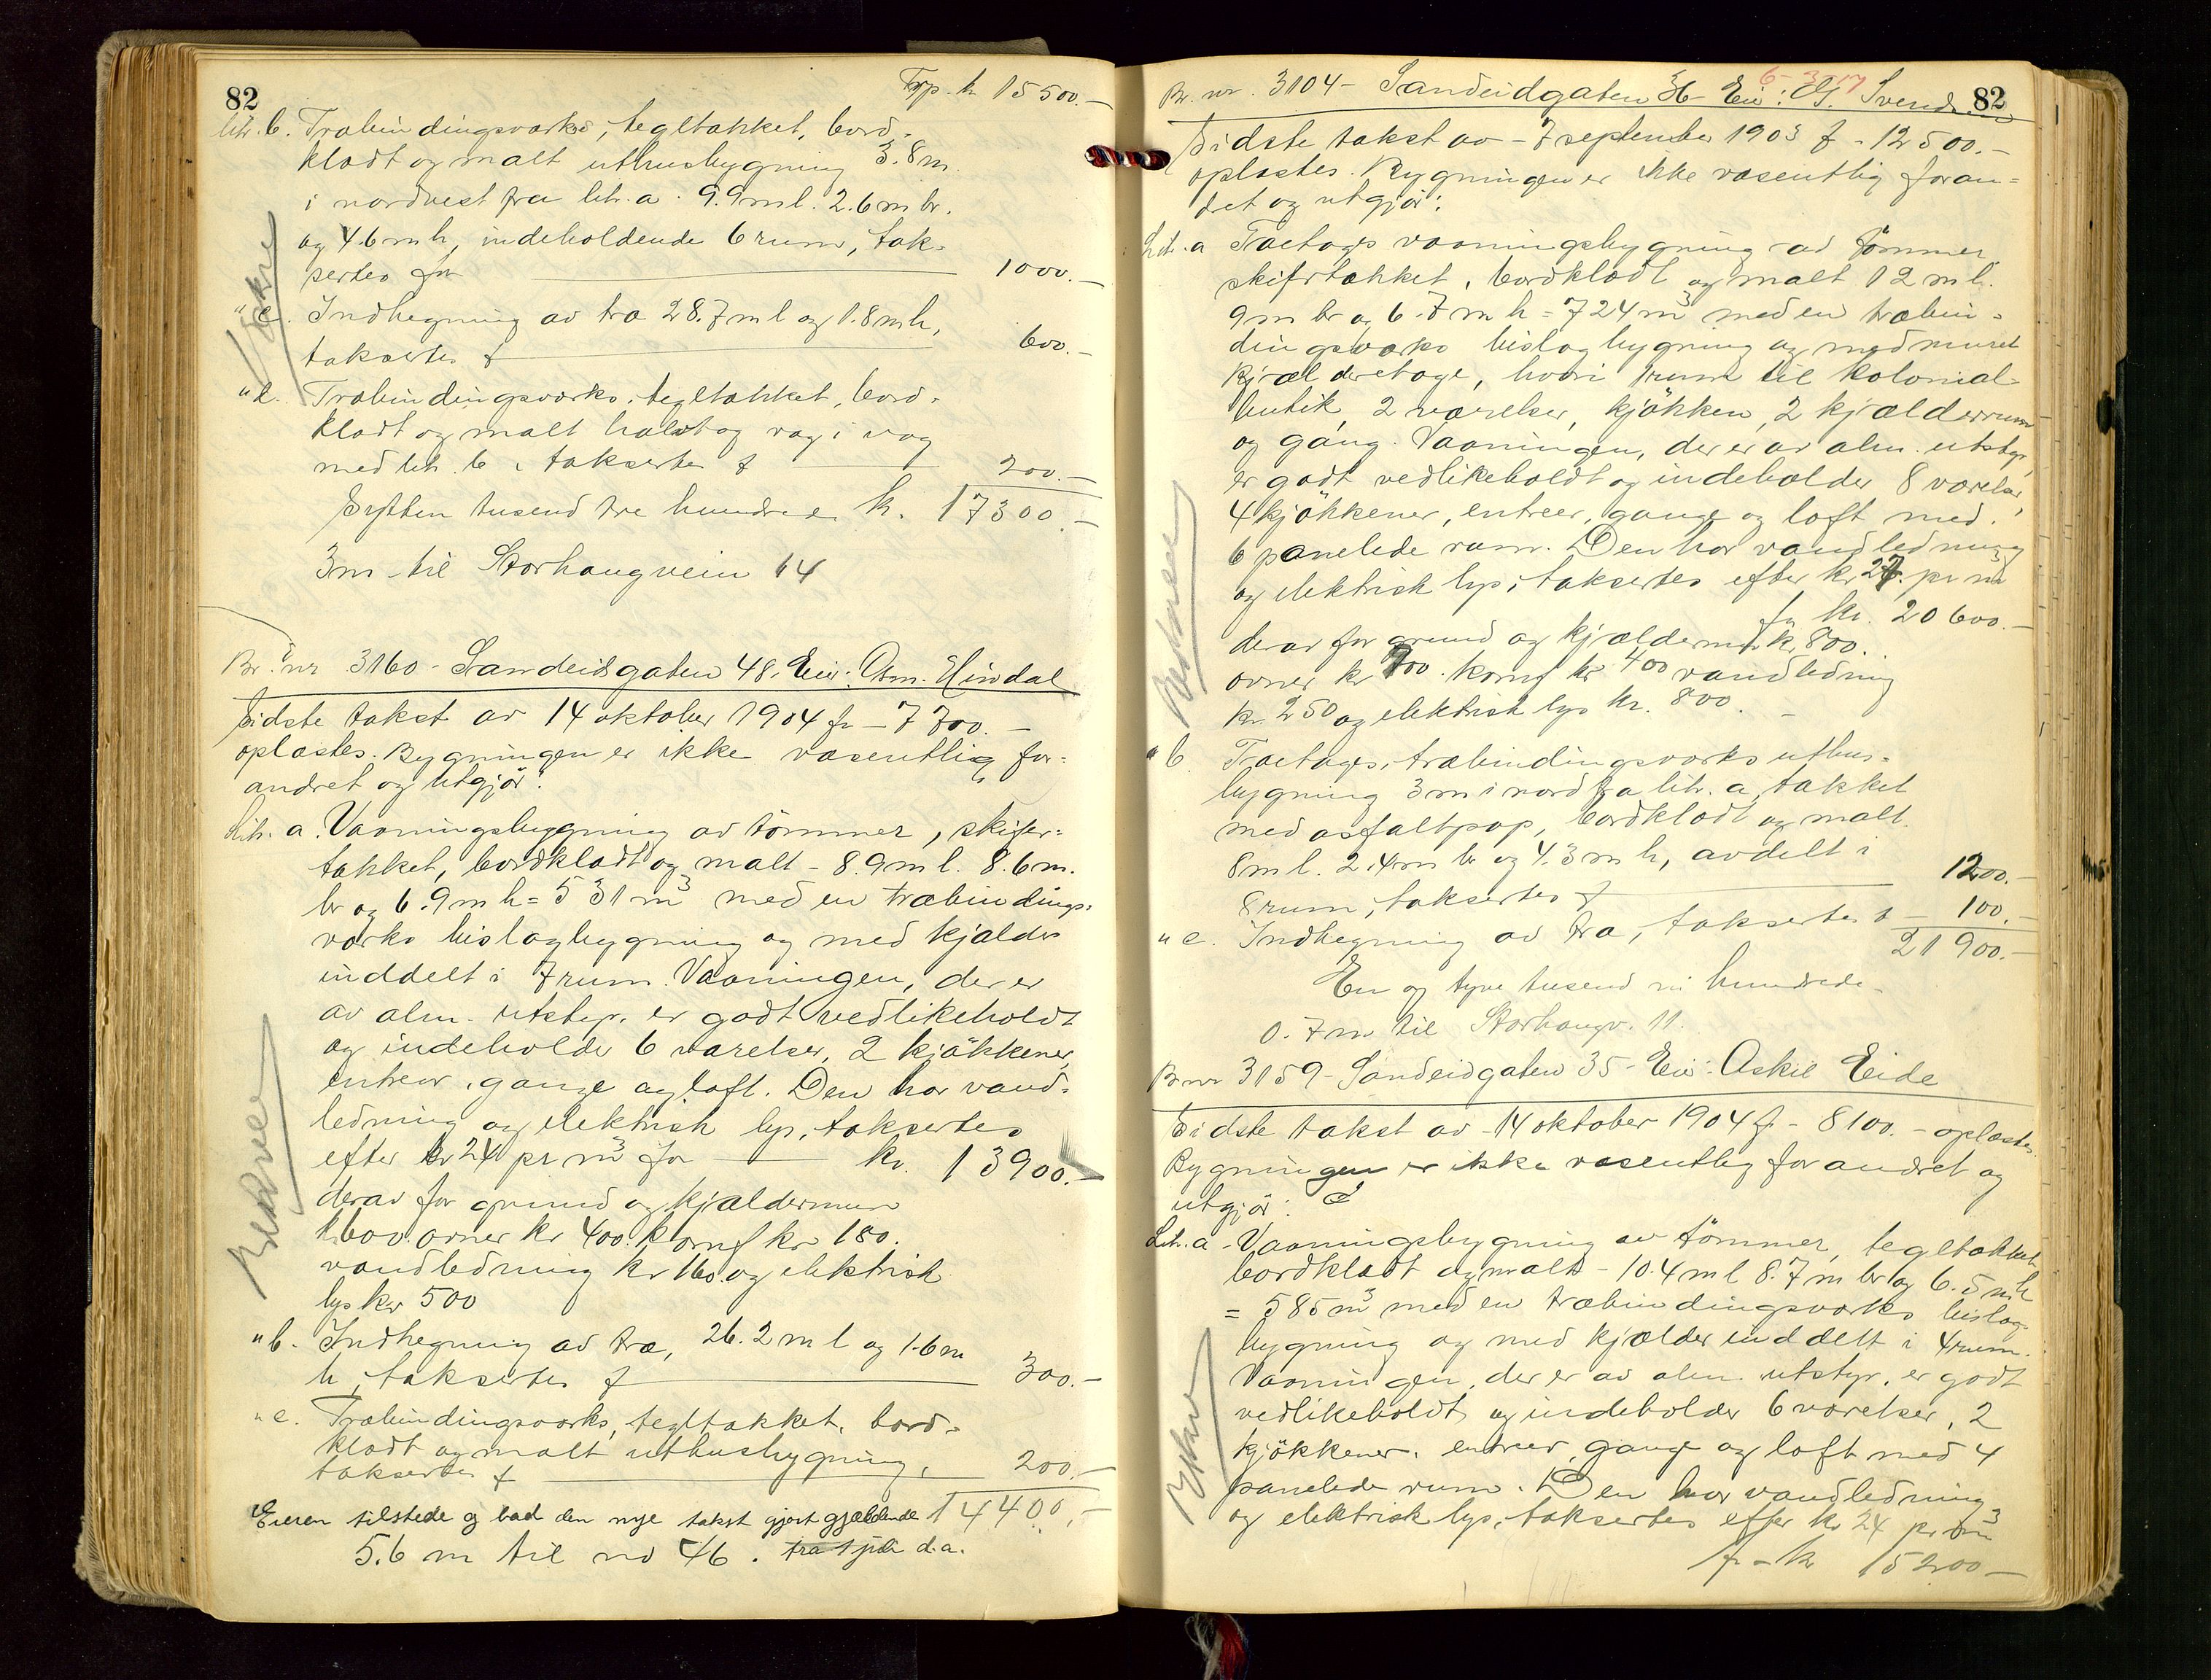 82
Trp. kr 15500.-
litr. b. Træbindingsværks, tegltækket, bord-
klædt og malt uthusbygning 3.8m.
i nordvest fra litr. a. 9.9ml. 2.6m br.
og 4.6mh, indeholdende 6 rum, tak-
sertes for 1000.-
" c. Indhegning av træ 28.7ml og 1.8mh,
takserte f 600.-
" d. Træbindingsverks, tegltækket, bord-
klædt og malt
med litr. b, takserte f 200.-
Sytten tusend tre hundrede kr. 17300.-
3m til Storhaugvein 14
Br. nr 3160 - Sandeidgaten 48. Eier: Asm. Hindal
Sidste takst av 14 oktober 1904 fr - 7700.-
oplæstes. Bygningen er ikke væsentlig for-
andret og utgjör:
Litr. a. Vaaningsbyggning av tömmer, skifer-
tækket, bordklædt og malt - 8.9ml. 8.6m.
br og 6.9mh = 531m³ med en træbindings-
værks bislagbygning og med kjælder
inddelt i 7 rum. Vaaningen, der er
av alm. utstyr, er godt vedlikeholdt
og indeholder 6 værelser, 2 kjökkener,
entreer, gange og loft. Den har vand-
ledning og elektrisk lys, taksertes
efter kr 24 pr m³ for kr. 13900.-
derav for grund og kjældermur
k 600. ovner kr 400. komf kr 180.
vandledning kr 160. og elektrisk
lys kr 500
" b. Indhegning av træ, 26.2ml og 1.6m
h, taksertes f 300.-
" c. Træbindingsværks, tegltækket, bord-
klædt og malt uthusbygning,
taksertes f 200.-
Eieren tilstede og bad den nye takst gjort gjældende 14400.-
5.6 m til no 46. fra 1 juli d.a.
82
Br. nr. 3104 - Sandeidgaten 36 - Eier: G. Svends
Sidste takst av - 7 september 1903 f - 12500.-
oplæstes. Bygningen er ikke væsentlig foran-
dret og utgjör:
Litr. a Toetages vaaningsbygning av tömmer
skifertækket, bordklædt og malt 12ml.
9m br og 6.7mh = 724m³ med en træbin-
dingsværks bislagbygning og med muret
kjælderetage, hvori 1 rum til kolonial-
butik, 2 værelser, kjökken, 2 kjælderrum
og gang. Vaaningen, der er av alm. utstyr,
er godt vedlikeholdt og indeholder 8 værelser,
4 kjökkener, entreer, gange og loft med
6 panelede rum. Den har vandledning
og elektrisk lys, taksertes efter kr 27. pr m³
for kr. 20600.-
derav for grund og kjældermur k 800.
ovner kr 700. komf kr 400 vandledning
kr. 250 og elektrisk lys kr. 800.-
" b. Toetages, træbindingsværks uthus-
bygning 3m i nord fra litr. a, tækket
med asfaltpap, bordklædt og malt.
8ml. 2.4m br og 4.3mh, avdelt i
8 rum, taksertes f 1200.-
" c. Indhegning av træ, taksertes f - 100.-
21900.-
En og tyve tusend ni hundrede -
0.7m til Storhaugv. 11.
Br nr 3159 - Sandeidgaten 35 - Eier: Askil Eide
Sidste takst av 14 oktober 1904 f. - 8100.- oplæstes.
Bygningen er ikke væsentlig forandret og
utgjör:
Litr. a - Vaaningsbygning av tömmer, tegltækket
bordklædt og malt - 10.4ml 8.7m br og 6.5mh
= 585m³ med en træbindingsværks bislag-
bygning og med kjælder inddelt i 4 rum.
Vaaningen, der er av alm. utstyr, er godt
vedlikeholdt og indeholder 6 værelser, 2
kjökkener, entreer, gange og loft med 4
panelede rum. Den har vandledning
og elektrisk lys, taksertes efter kr 24 pr m³
f - kr 15200-